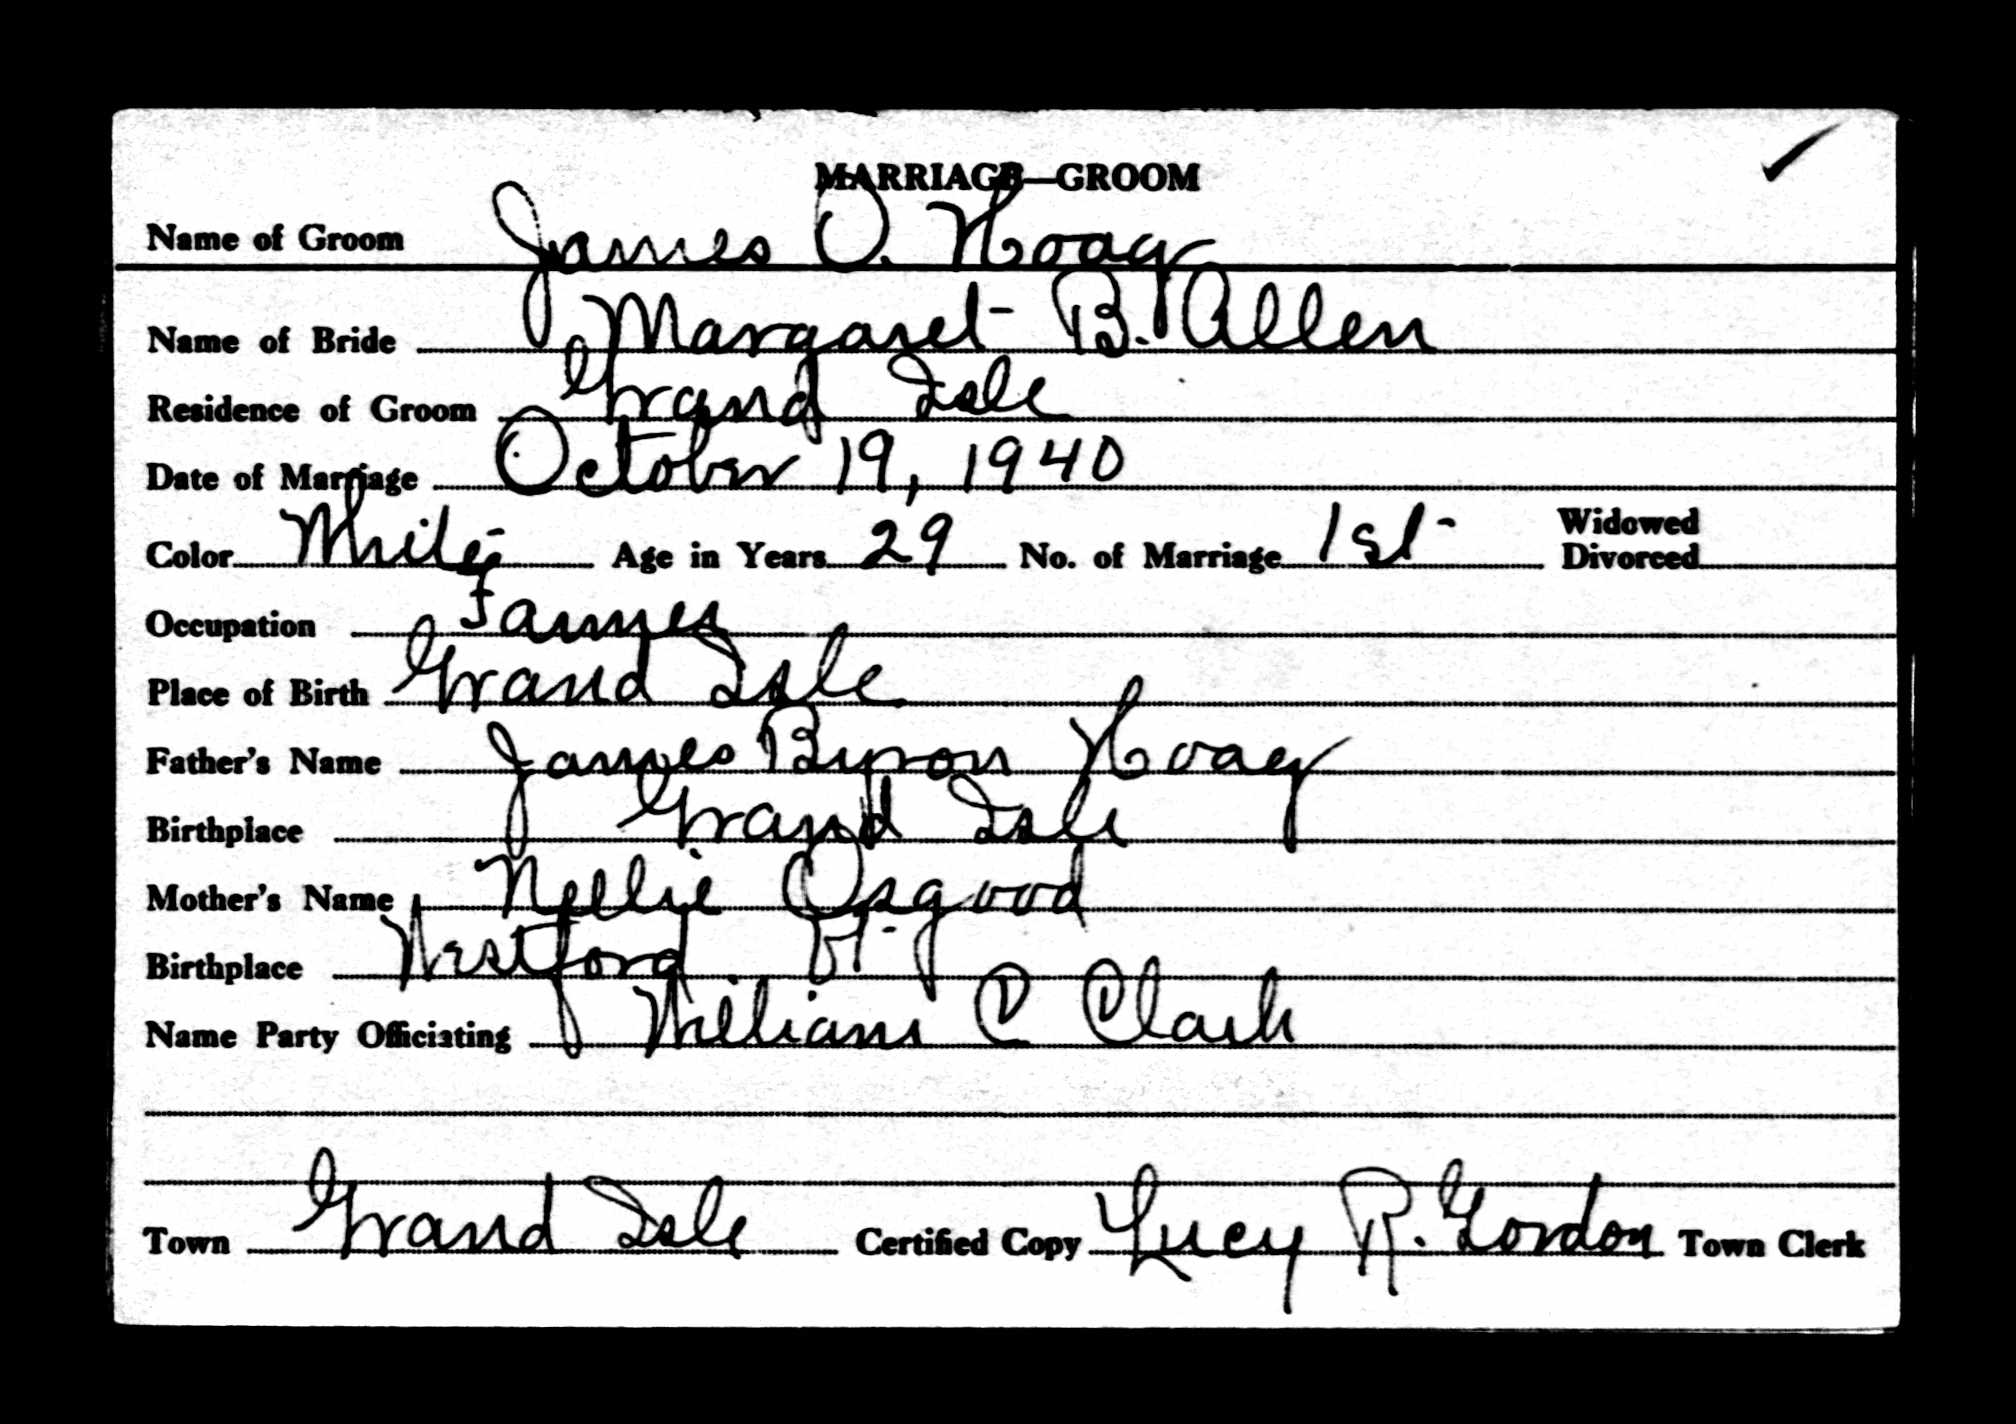 MARRIAGE—GROOM
Name of Groom James O. Hoag
Name of Bride Margaret B. Allen
Residence of Groom Grand Isle
Date of Marriage October 19, 1940
Color White Age in Years 29 No. of Marriage 1st Widowed Divorced
Occupation Farmer
Place of Birth Grand Isle
Father's Name James Byron Hoag
Birthplace Grand Isle
Mother's Name Nellie Osgood
Birthplace Westford Vt.
Name Party Officiating William C Clark
Town Grand Isle Certified Copy Lucy R. Gordon Town Clerk